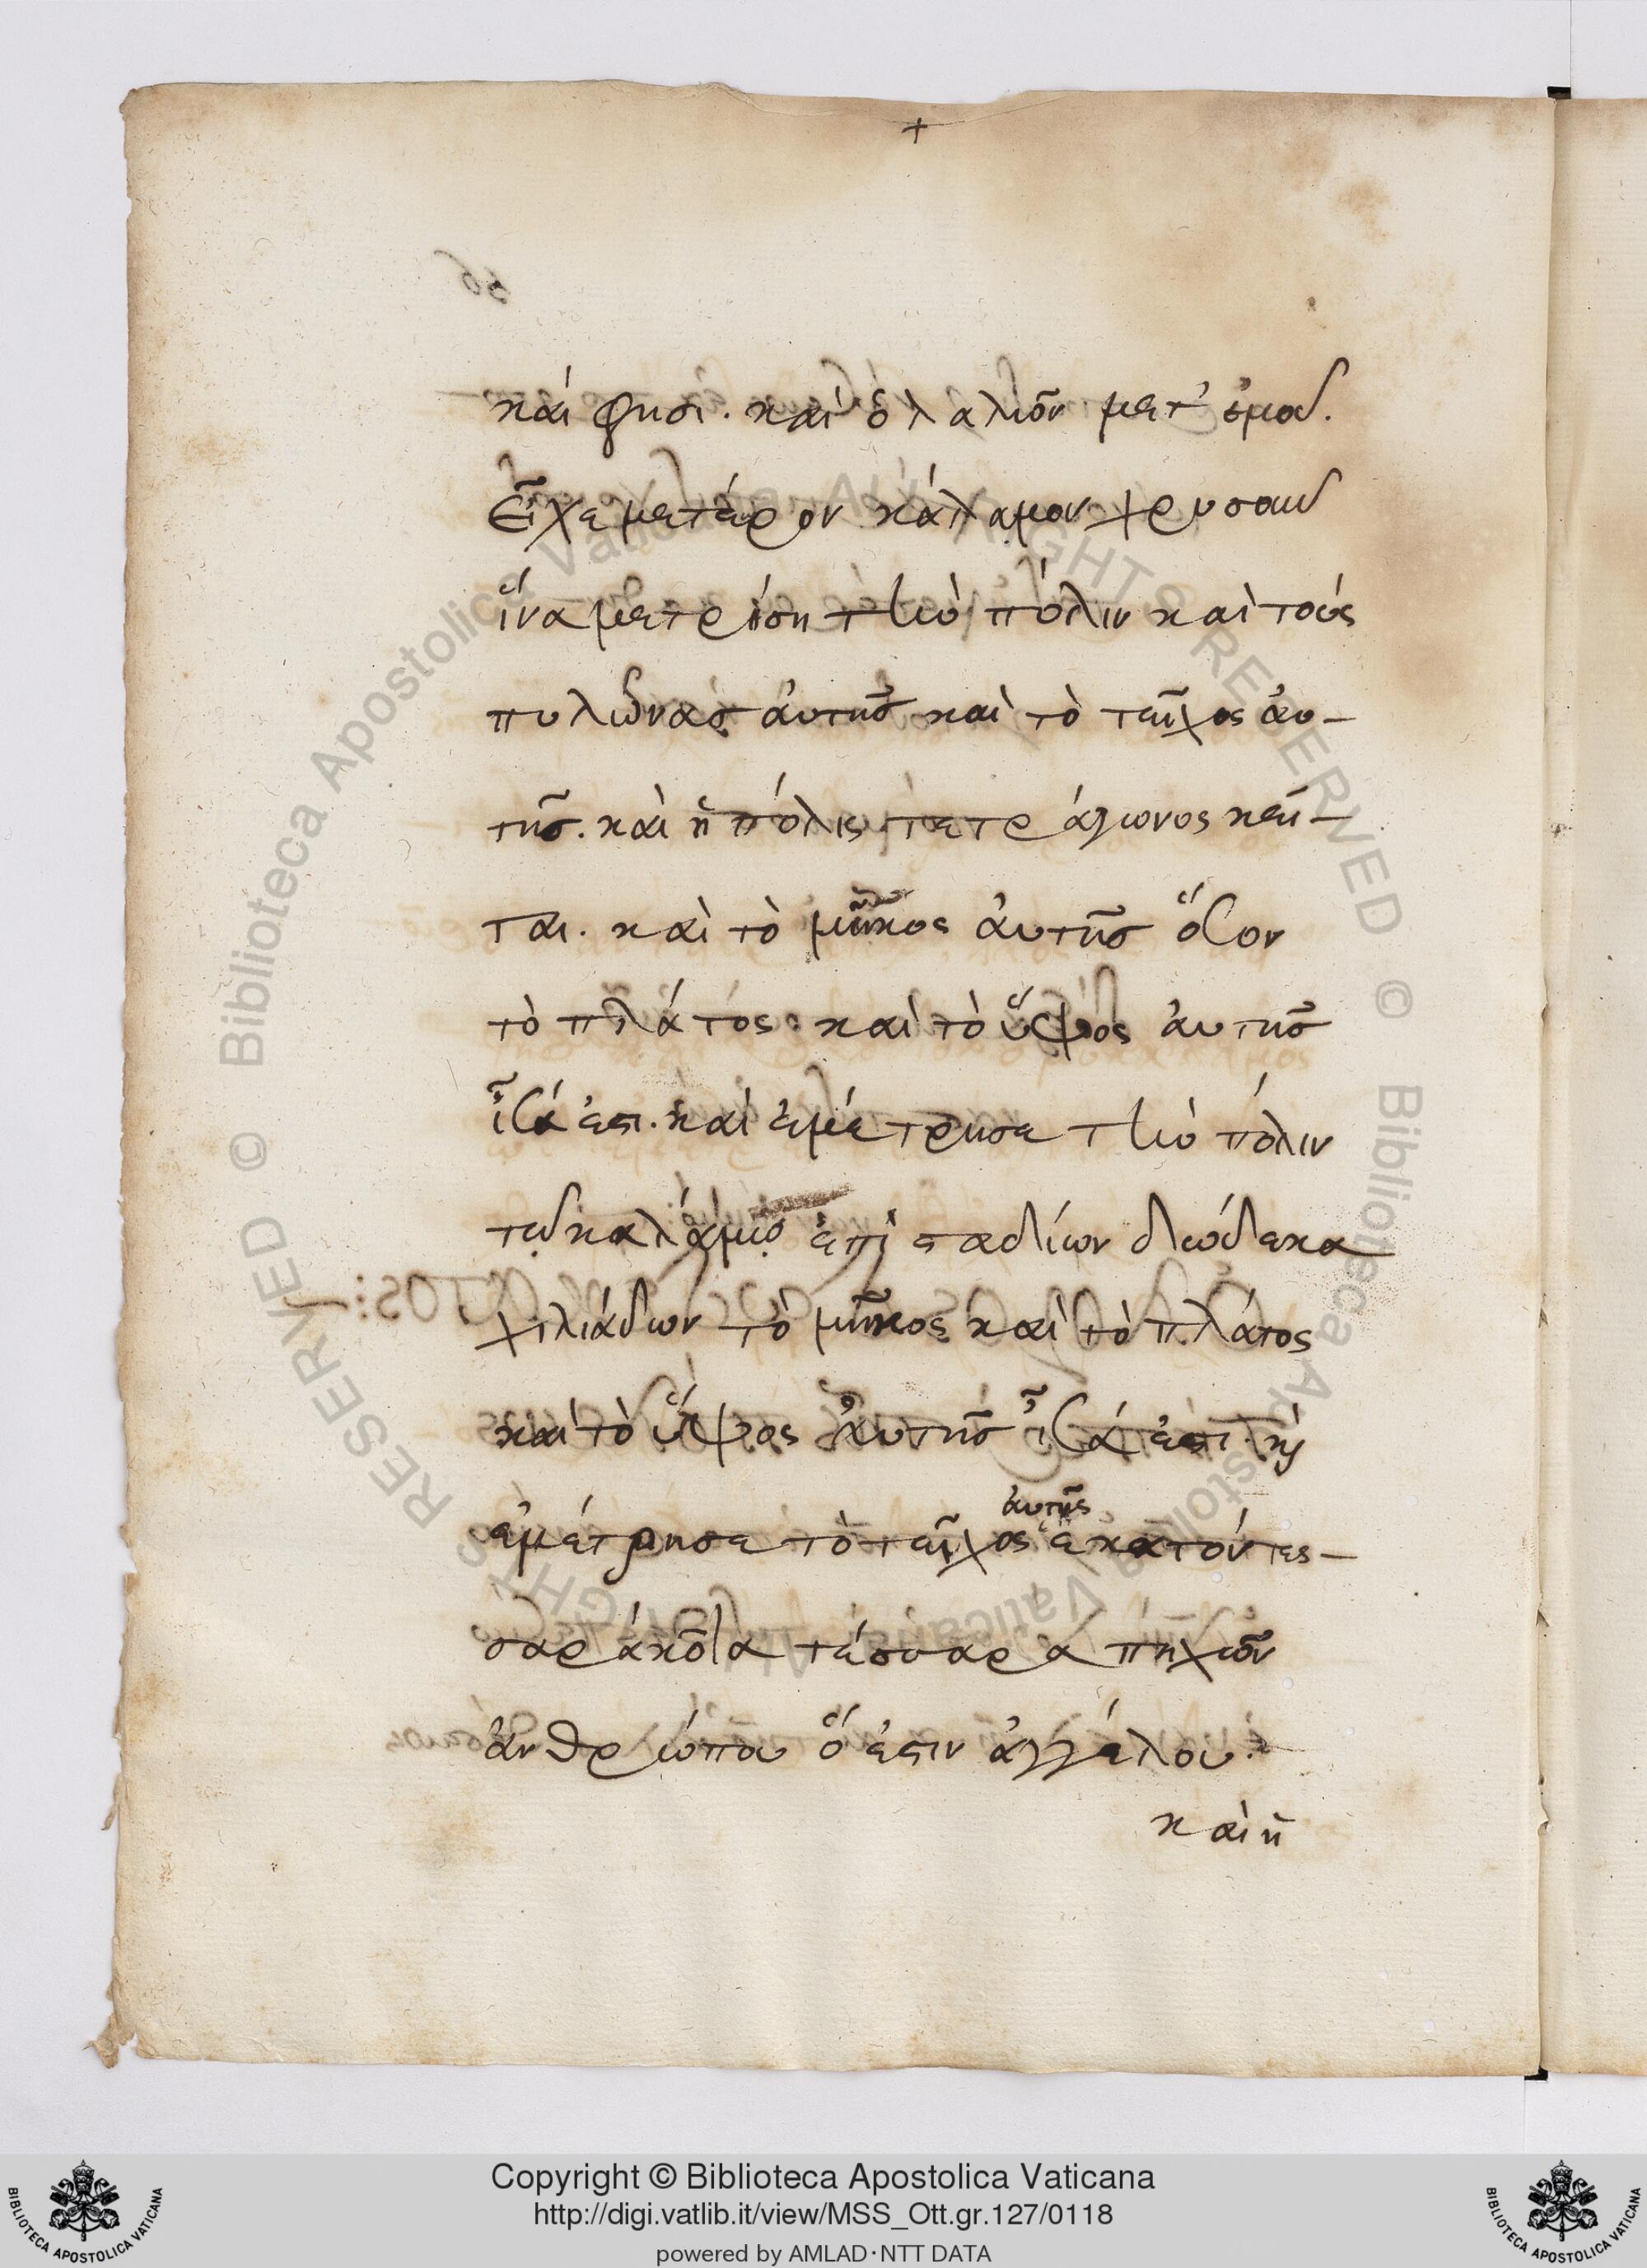 +
καί φησι. καὶ ὁ λαλῶν μετ' ἐμοῦ.
Εἶχε μέτρον κάλαμον χρυσοῦν
ἵνα μετρήσῃ τὴν πόλιν καὶ τοὺς
πυλῶνας αὐτῆς καὶ τὸ τεῖχος αὐ-
τῆς. καὶ ἡ πόλις τετράγωνος κεῖ-
ται. καὶ τὸ μῆκος αὐτῆς ὅσον
τὸ πλάτος. καὶ τὸ ὕψος αὐτῆς
ἶσά ἐστι. καὶ ἐμέτρησε τὴν πόλιν
τῷ καλάμῳ ἐπὶ σταδίων δώδεκα
χιλιάδων τὸ μῆκος καὶ τὸ πλάτος
καὶ τὸ ὕψος αὐτῆς ἶσά ἐστι. καὶ
ἐμέτρησε τὸ τεῖχος αὐτῆς ἑκατόν τες-
σαράκοντα τέσσαρα πηχῶν
ἀνθρώπου ὅ ἐστιν ἀγγέλου.
καὶ ἡ
Copyright © Biblioteca Apostolica Vaticana
http://digi.vatlib.it/view/MSS_Ott.gr.127/0118
powered by AMLAD·NTT DATA
BIBLIOTECA APOSTOLICA VATICANA
BIBLIOTECA APOSTOLICA VATICANA